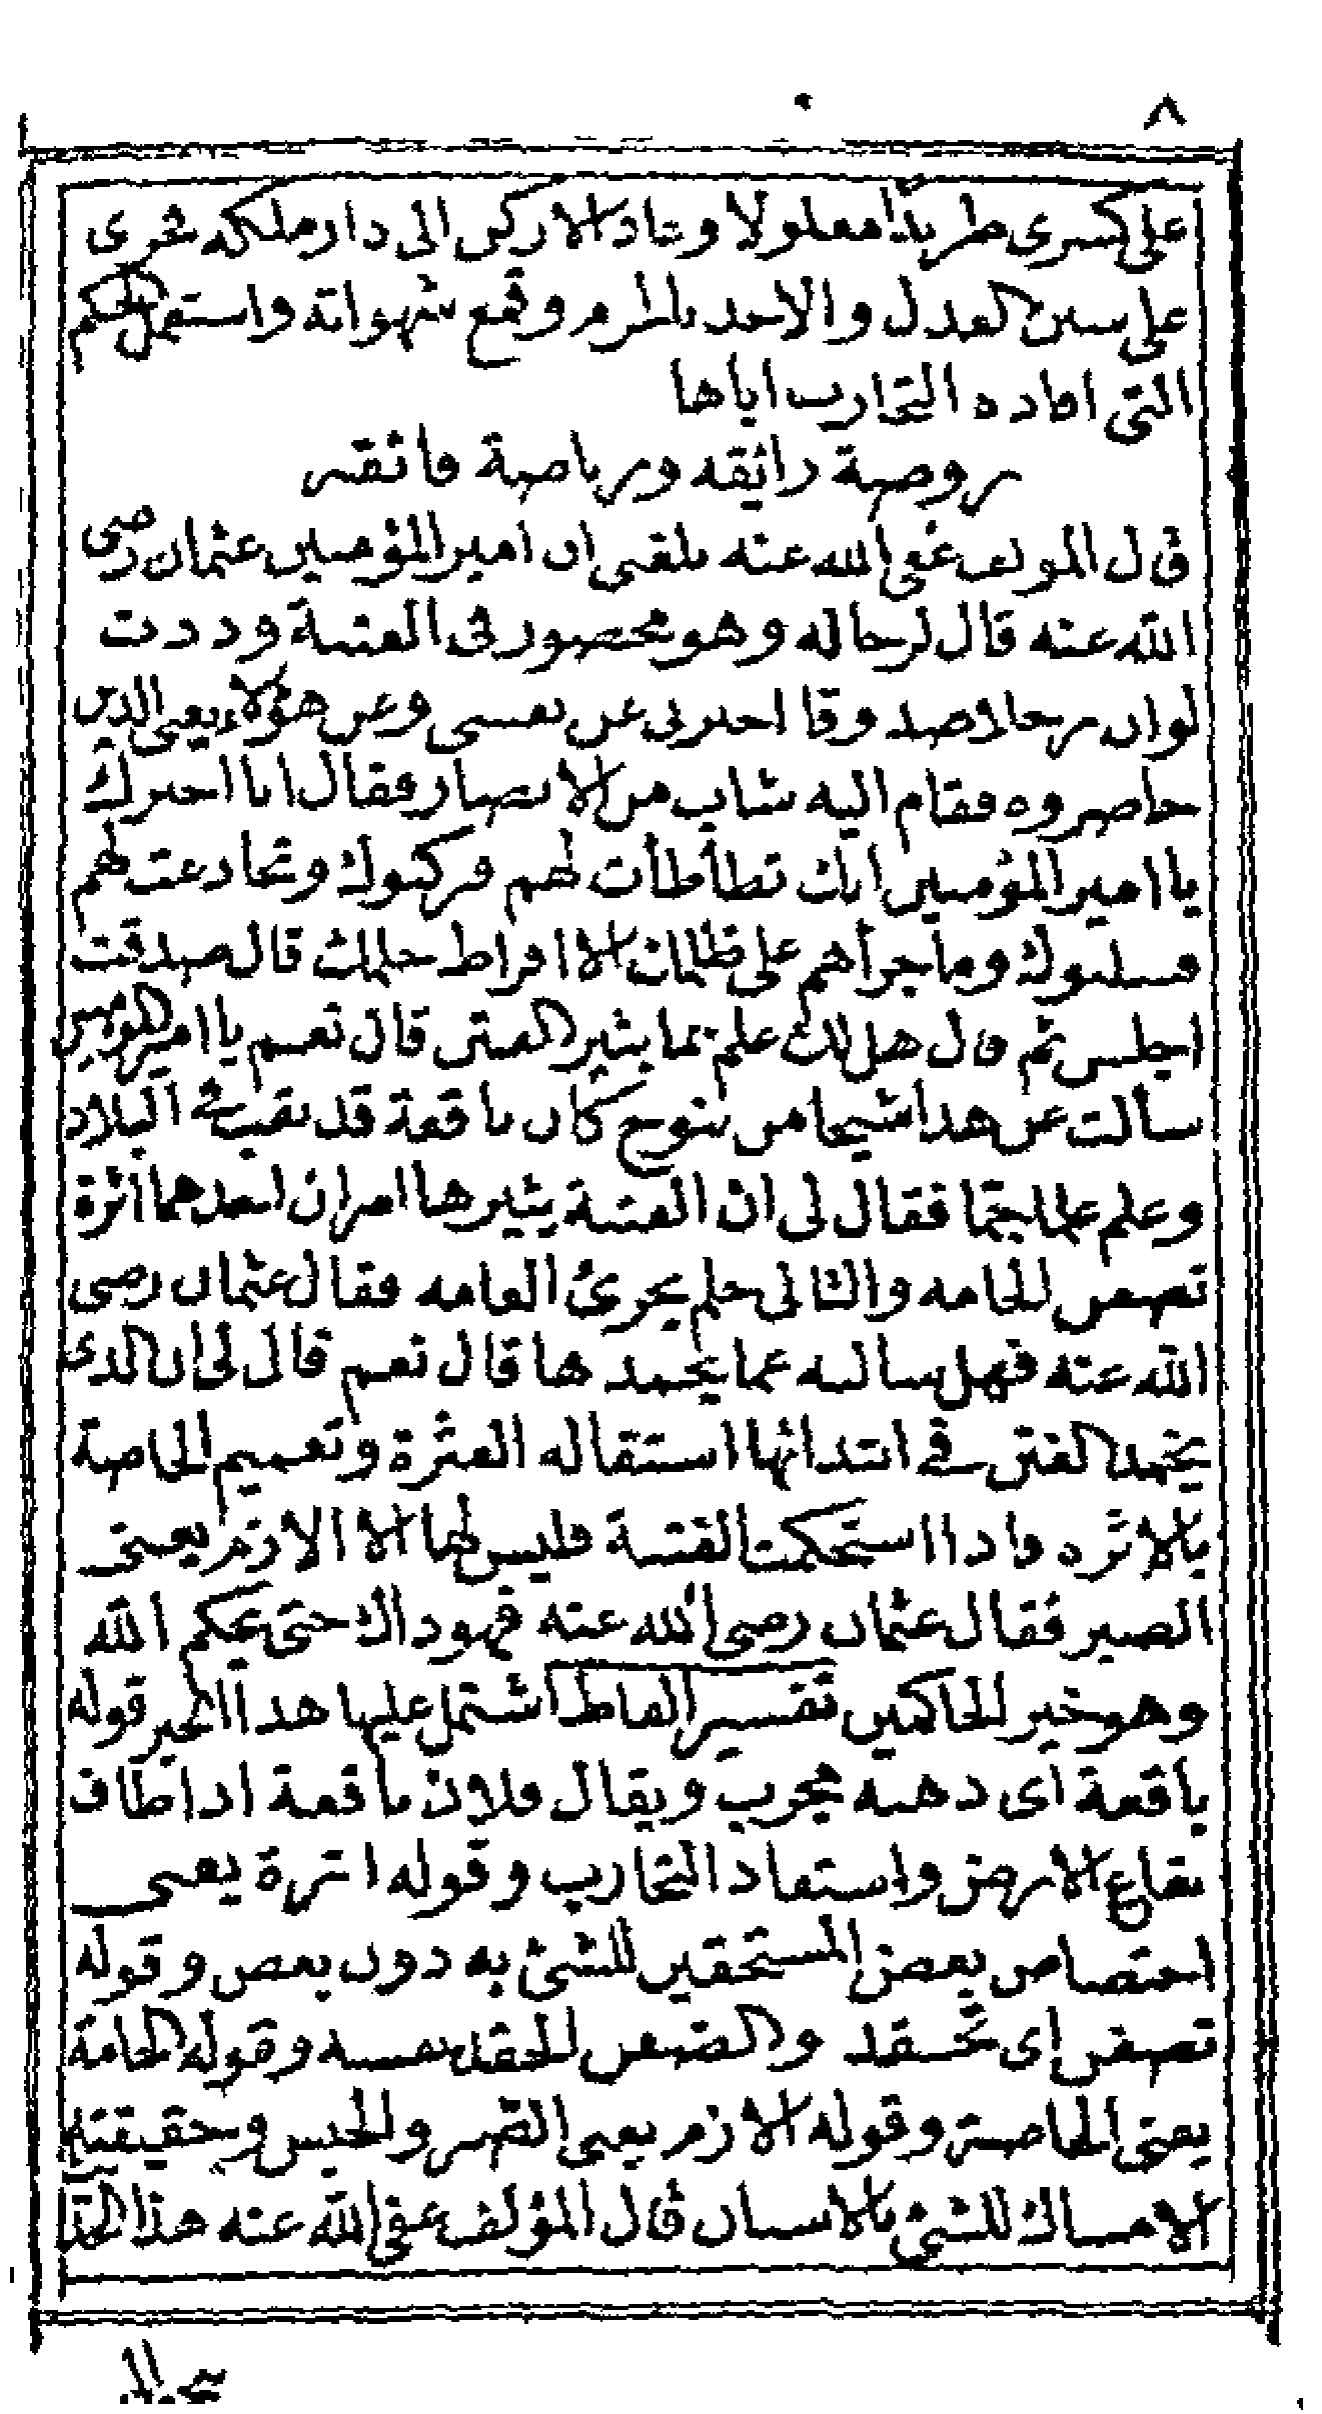 ٨
على كسرى طريدا معلولا وعاد الاركن الى دار ملكه فجرى
على سنن العدل والاخذ بالحزم وقمع شهواته واستعمل الحكم
التى افاده التجارب اياها
روضة رائقه ورياضة فائقه
قال المولف عفى الله عنه بلغنى ان امير المؤمنين عثمان رضى
الله عنه قال لرجاله وهو محصور فى الفتنة وددت
لو ان رجلا صدوقا اخبرنى عن نفسى وعن هؤلاء يعنى الذين
حاصروه فقام اليه شاب من الانصار فقال انا اخبرك
يا امير المؤمنين انك تطأطأت لهم فركبوك وتخادعت لهم
فسلبوك وما جرأهم على ظلمك الا افراط حلمك قال صدقت
اجلس ثم قال هل لك علم بما يثير الفتن قال نعم يا امير المومنين
سألت عن هذا شيخا من تنوخ كان باقعة قد نقب فى البلاد
وعلم علما جما فقال لى ان الفتنة يثيرها امران احدهما اثرة
تضغن الخاصه والثانى حلم يجرئ العامه فقال عثمان رضى
الله عنه فهل سالته عما يخمدها قال نعم قال لى ان الذى
يخمد الفتن فى ابتدائها استقاله العثرة وتعميم الخاصة
بالاثره واذا استحكمت الفتنة فليس لها الا الازم يعنى
الصبر فقال عثمان رضى الله عنه فهو ذاك حتى يحكم الله
وهو خير الحاكمين تفسير الفاظ اشتمل عليها هذا الخبر قوله
باقعة اى دهية مجرب ويقال فلان باقعة اذا طاف
بقاع الارض واستفاد التجارب وقوله اثرة يعنى
اختصاص بعض المستحقين للشئ به دون بعض وقوله
تضغن اى تحقد والضغن الحقد نفسه وقوله الخامة
يعنى الخاصة وقوله الازم يعنى الصبر والحبس وحقيقته
الامساك للشئ بالاسنان قال المؤلف عفى الله عنه هذا الحد